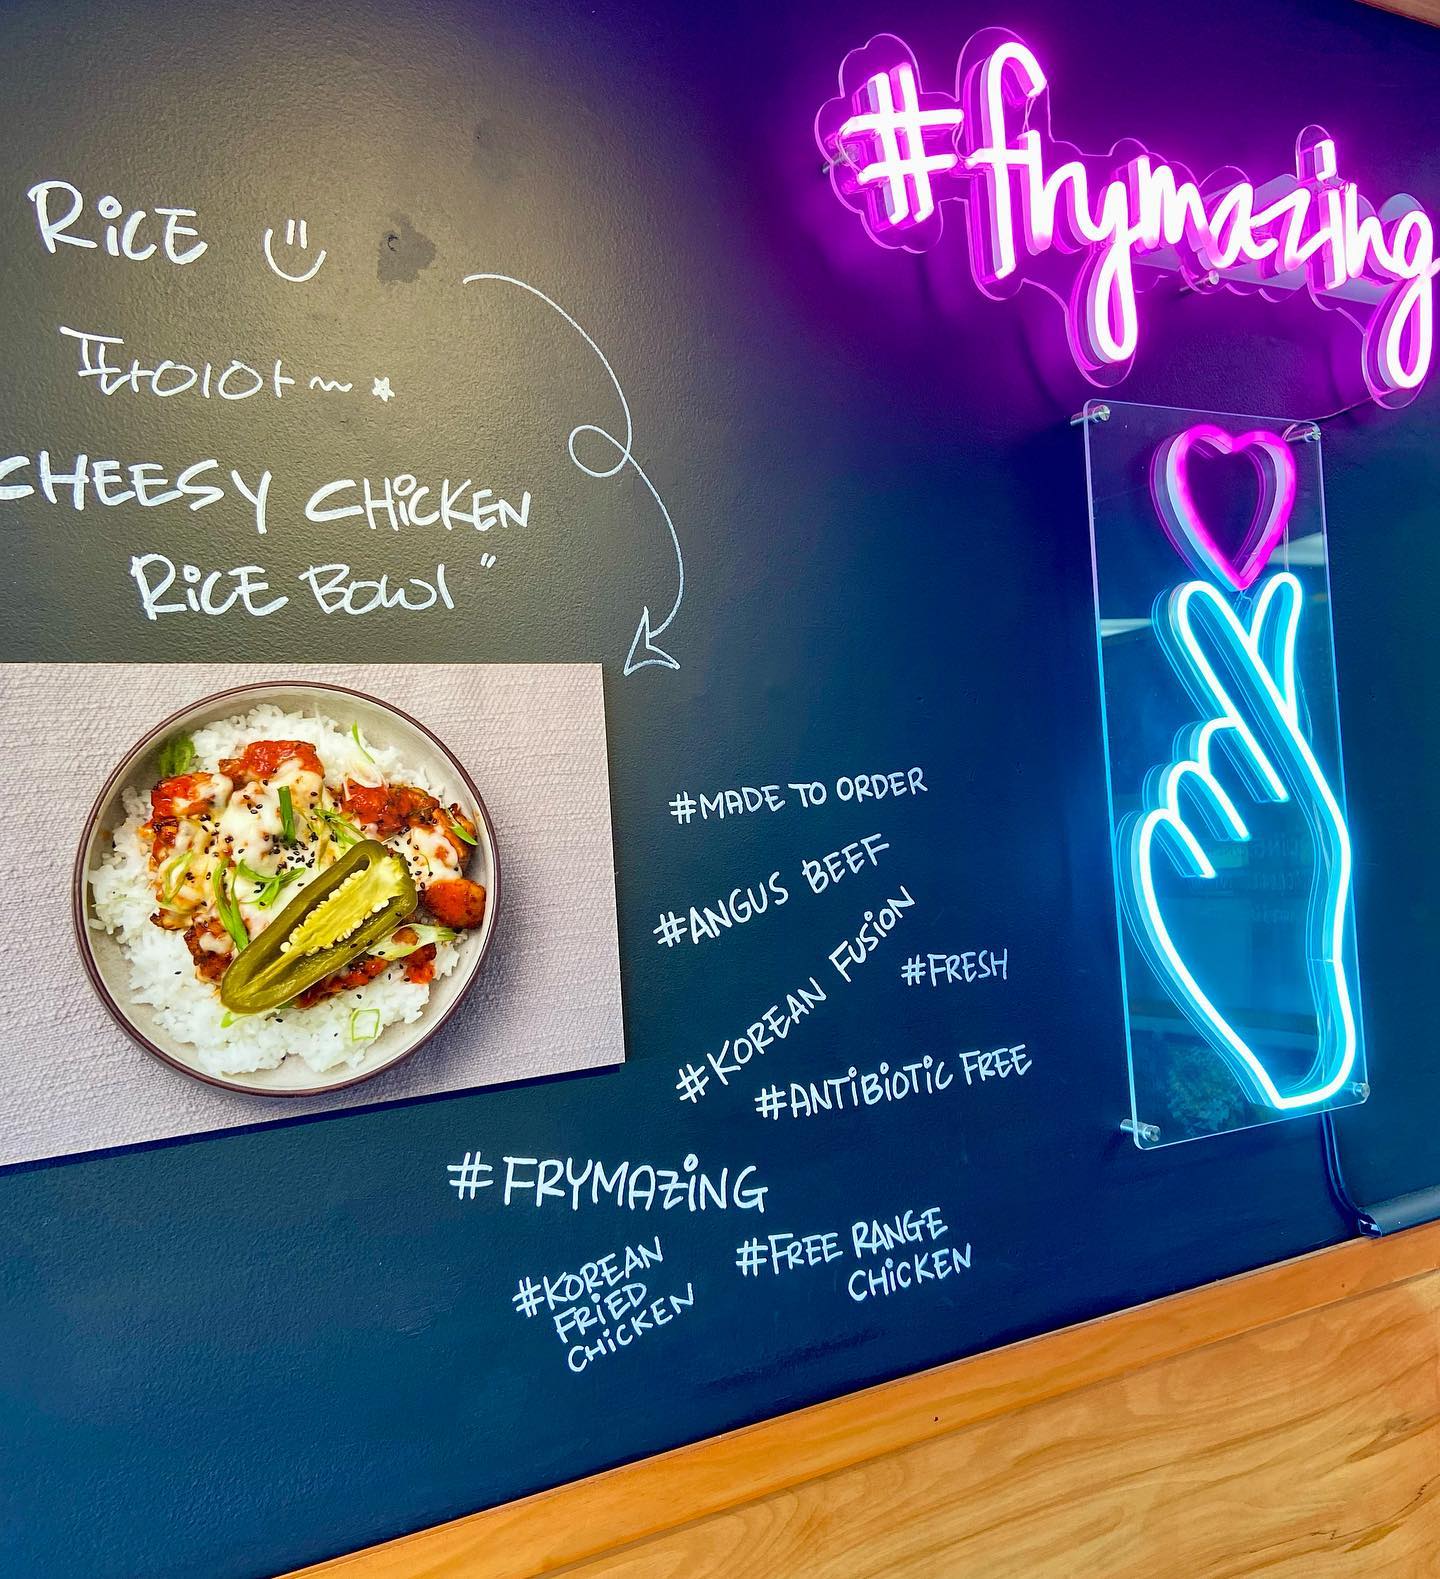 #frymazing
RiCE
파이아~
CHEESY CHiCKEN
RiCE BOWl"
#MADE TO ORDER
#ANGUS BEEF
#KOREAN FUSiON
#FRESH
#ANTiBiOTiC FREE
#FRYMAZiNG
#KOREAN
FRiED
CHiCKEN
#FREE RANGE
CHiCKEN